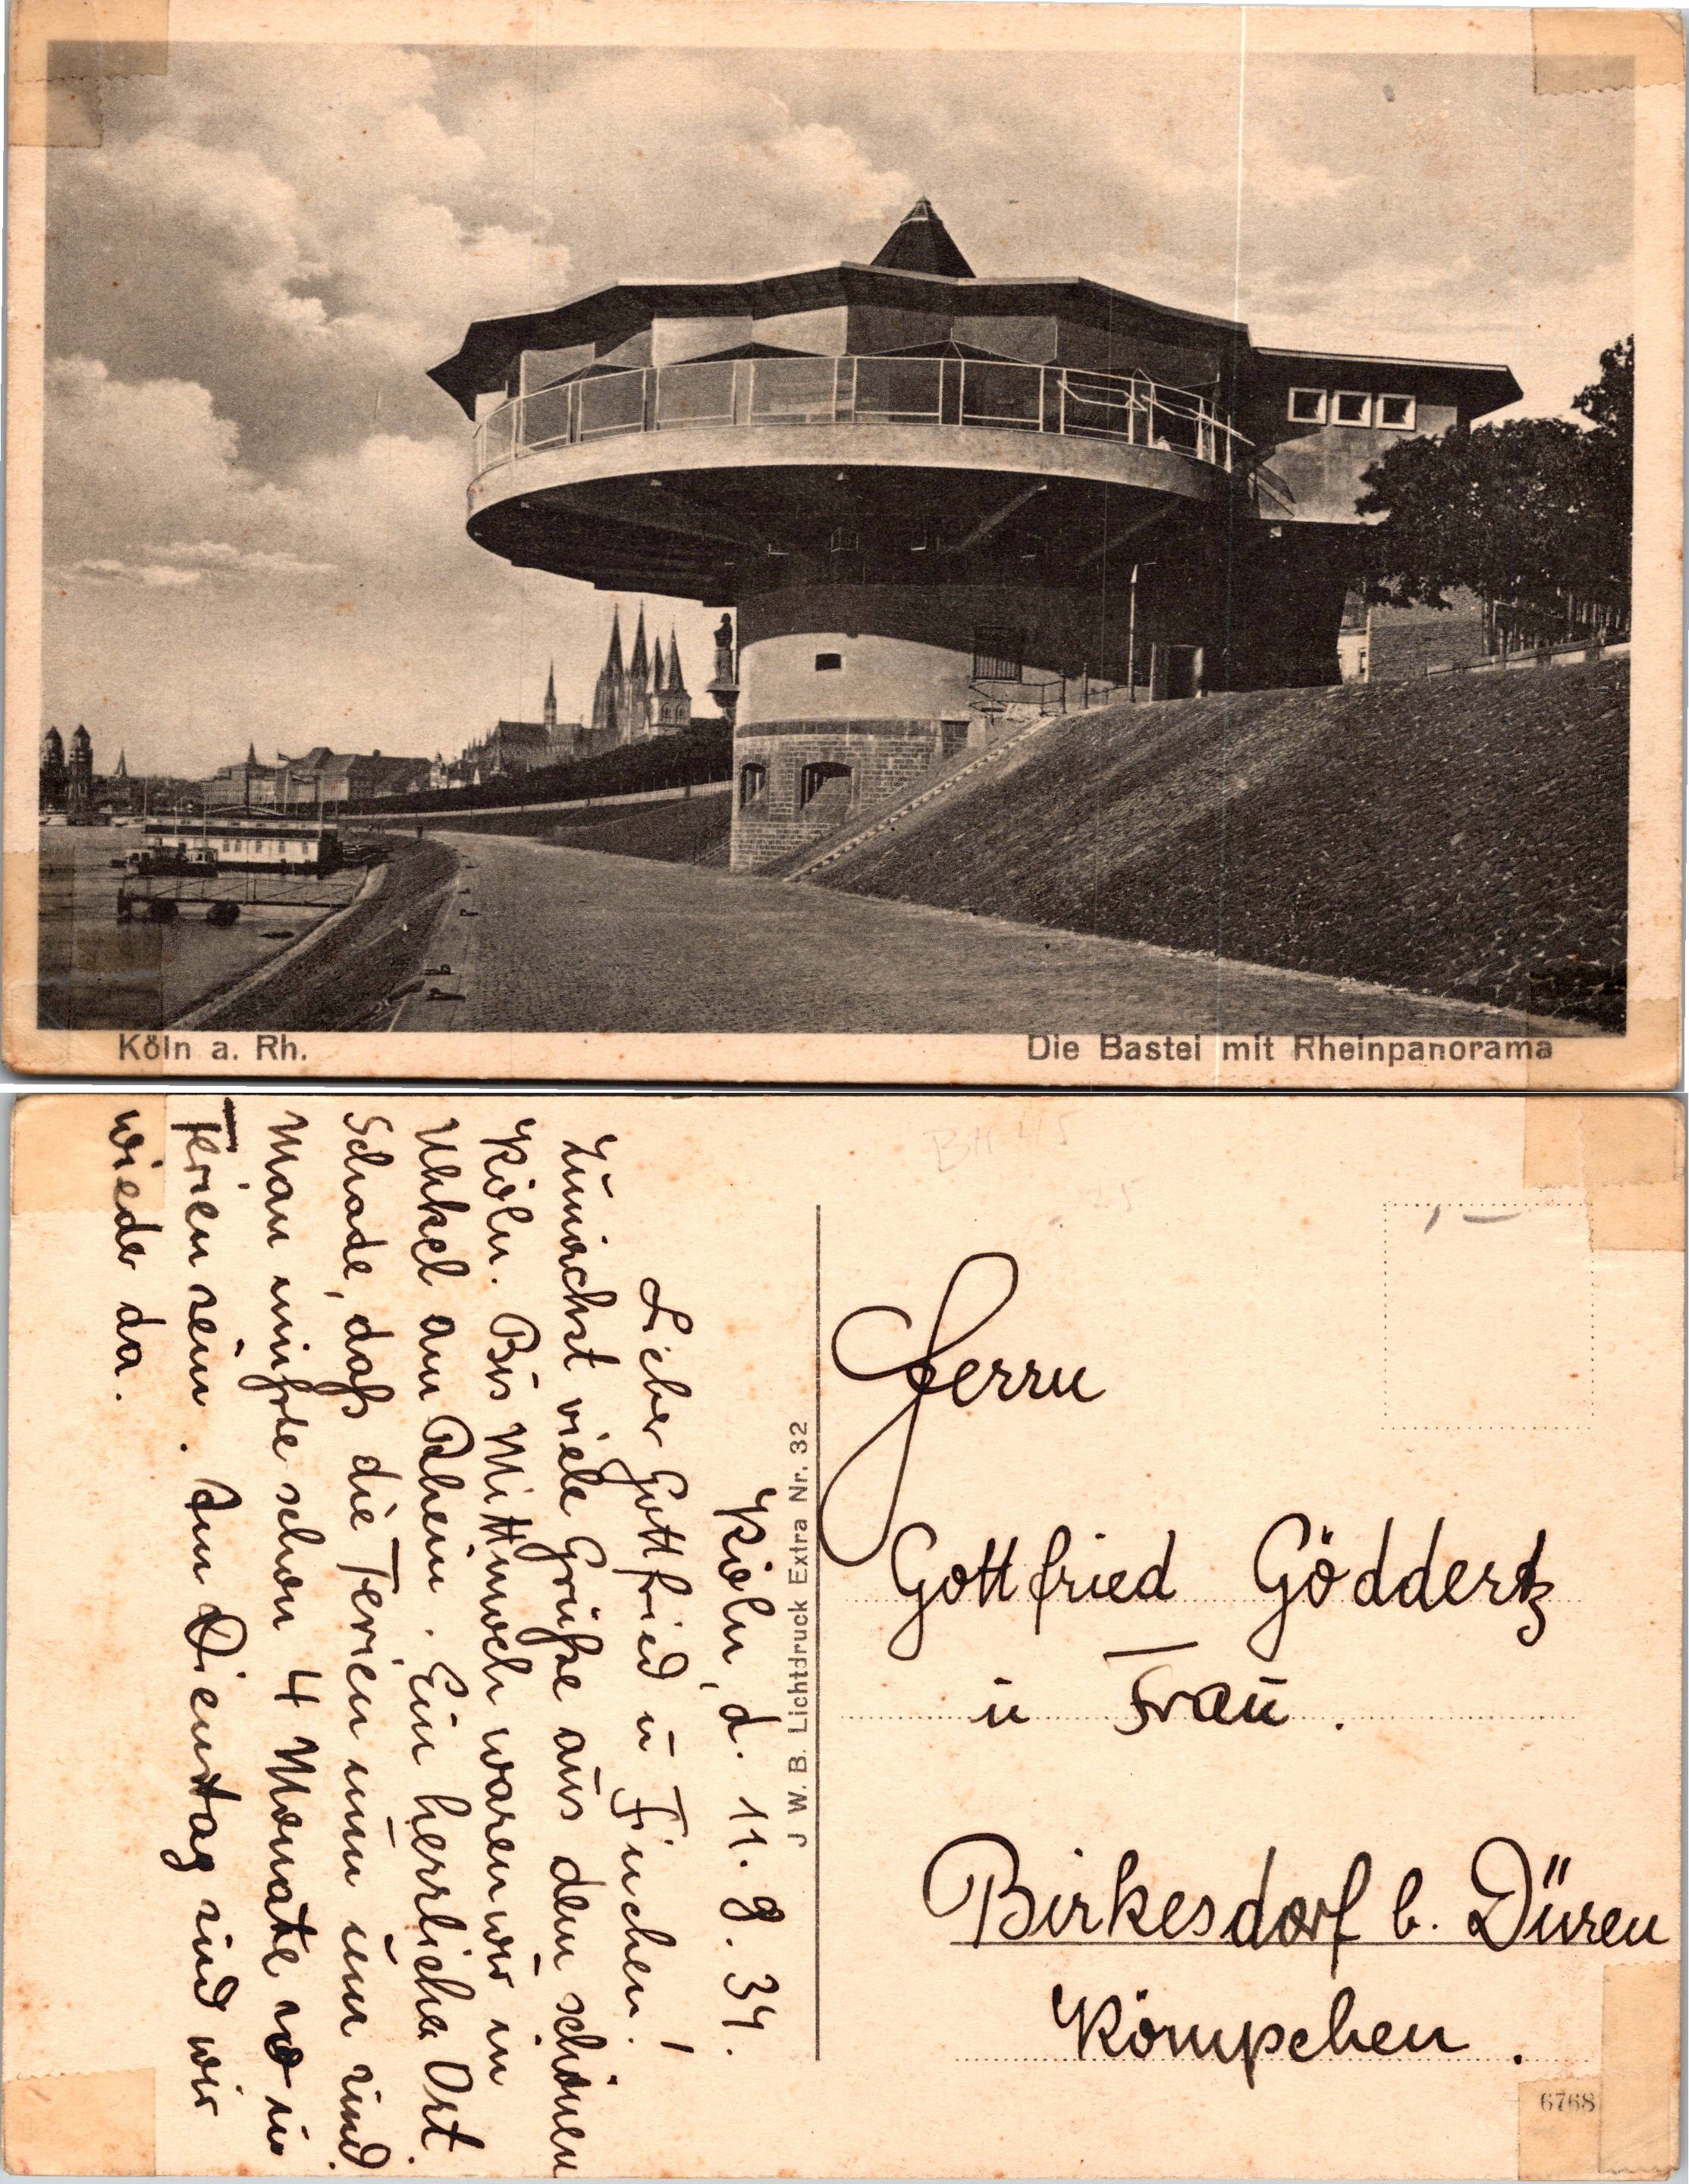 Köln a. Rh.
Die Bastei mit Rheinpanorama
Köln, d. 11. 8. 34.
Lieber Gottfried u Finchen!
Zunächst viele Grüße aus dem schönen
Köln. Bis Mittwoch waren wir in
Unkel am Rhein. Ein herrlicher Ort.
Schade, daß die Ferien nun um sind.
Man müßte schon 4 Monate so in
Ferien sein. Am Dienstag sind wir
wieder da.
J. W. B. Lichtdruck Extra Nr. 32
Herrn
Gottfried Göddertz
u Frau.
Birkesdorf b. Düren
Kömpchen.
6768